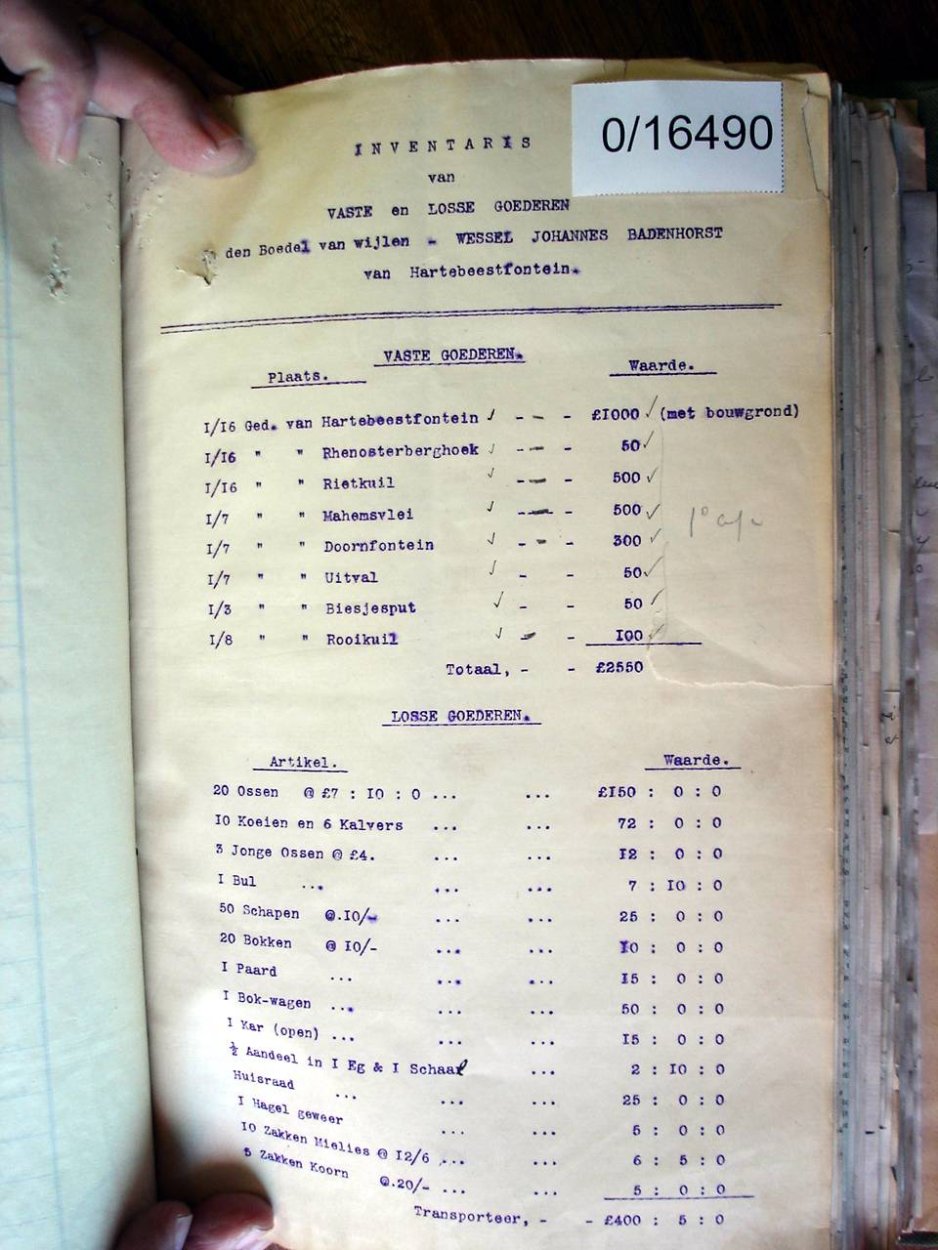 0/16490
INVENTARIS
van
VASTE en LOSSE GOEDEREN
den Boedel van wijlen - WESSEL JOHANNES BADENHORST
van Hartebeestfontein.
VASTE GOEDEREN.
Plaats. Waarde.
I/I6 Ged. van Hartebeestfontein ✓ - - - £I000 ✓ (met bouwgrond)
I/I6 " " Rhenosterberghoek ✓ - - - 50 ✓
I/I6 " " Rietkuil ✓ - - - 500 ✓
I/7 " " Mahemsvlei ✓ - - - 500 ✓
I/7 " " Doornfontein ✓ - - - 300 ✓
I/7 " " Uitval ✓ - - 50 ✓
I/3 " " Biesjesput ✓ - - 50 ✓
I/8 " " Rooikuil ✓ - - I00 ✓
Totaal, - - £2550
LOSSE GOEDEREN.
Artikel. Waarde.
20 Ossen @ £7 : I0 : 0 ... ... £I50 : 0 : 0
I0 Koeien en 6 Kalvers ... ... 72 : 0 : 0
3 Jonge Ossen @ £4. ... ... I2 : 0 : 0
I Bul ... ... ... 7 : I0 : 0
50 Schapen @.I0/- ... ... 25 : 0 : 0
20 Bokken @ I0/- ... ... I0 : 0 : 0
I Paard ... ... ... I5 : 0 : 0
I Bok-wagen ... ... ... 50 : 0 : 0
I Kar (open) ... ... ... I5 : 0 : 0
½ Aandeel in I Eg & I Schaaf ... 2 : I0 : 0
Huisraad ... ... ... 25 : 0 : 0
I Hagel geweer ... ... 5 : 0 : 0
I0 Zakken Mielies @ I2/6 ... ... 6 : 5 : 0
5 Zakken Koorn @.20/- ... ... 5 : 0 : 0
Transporteer, - - £400 : 5 : 0